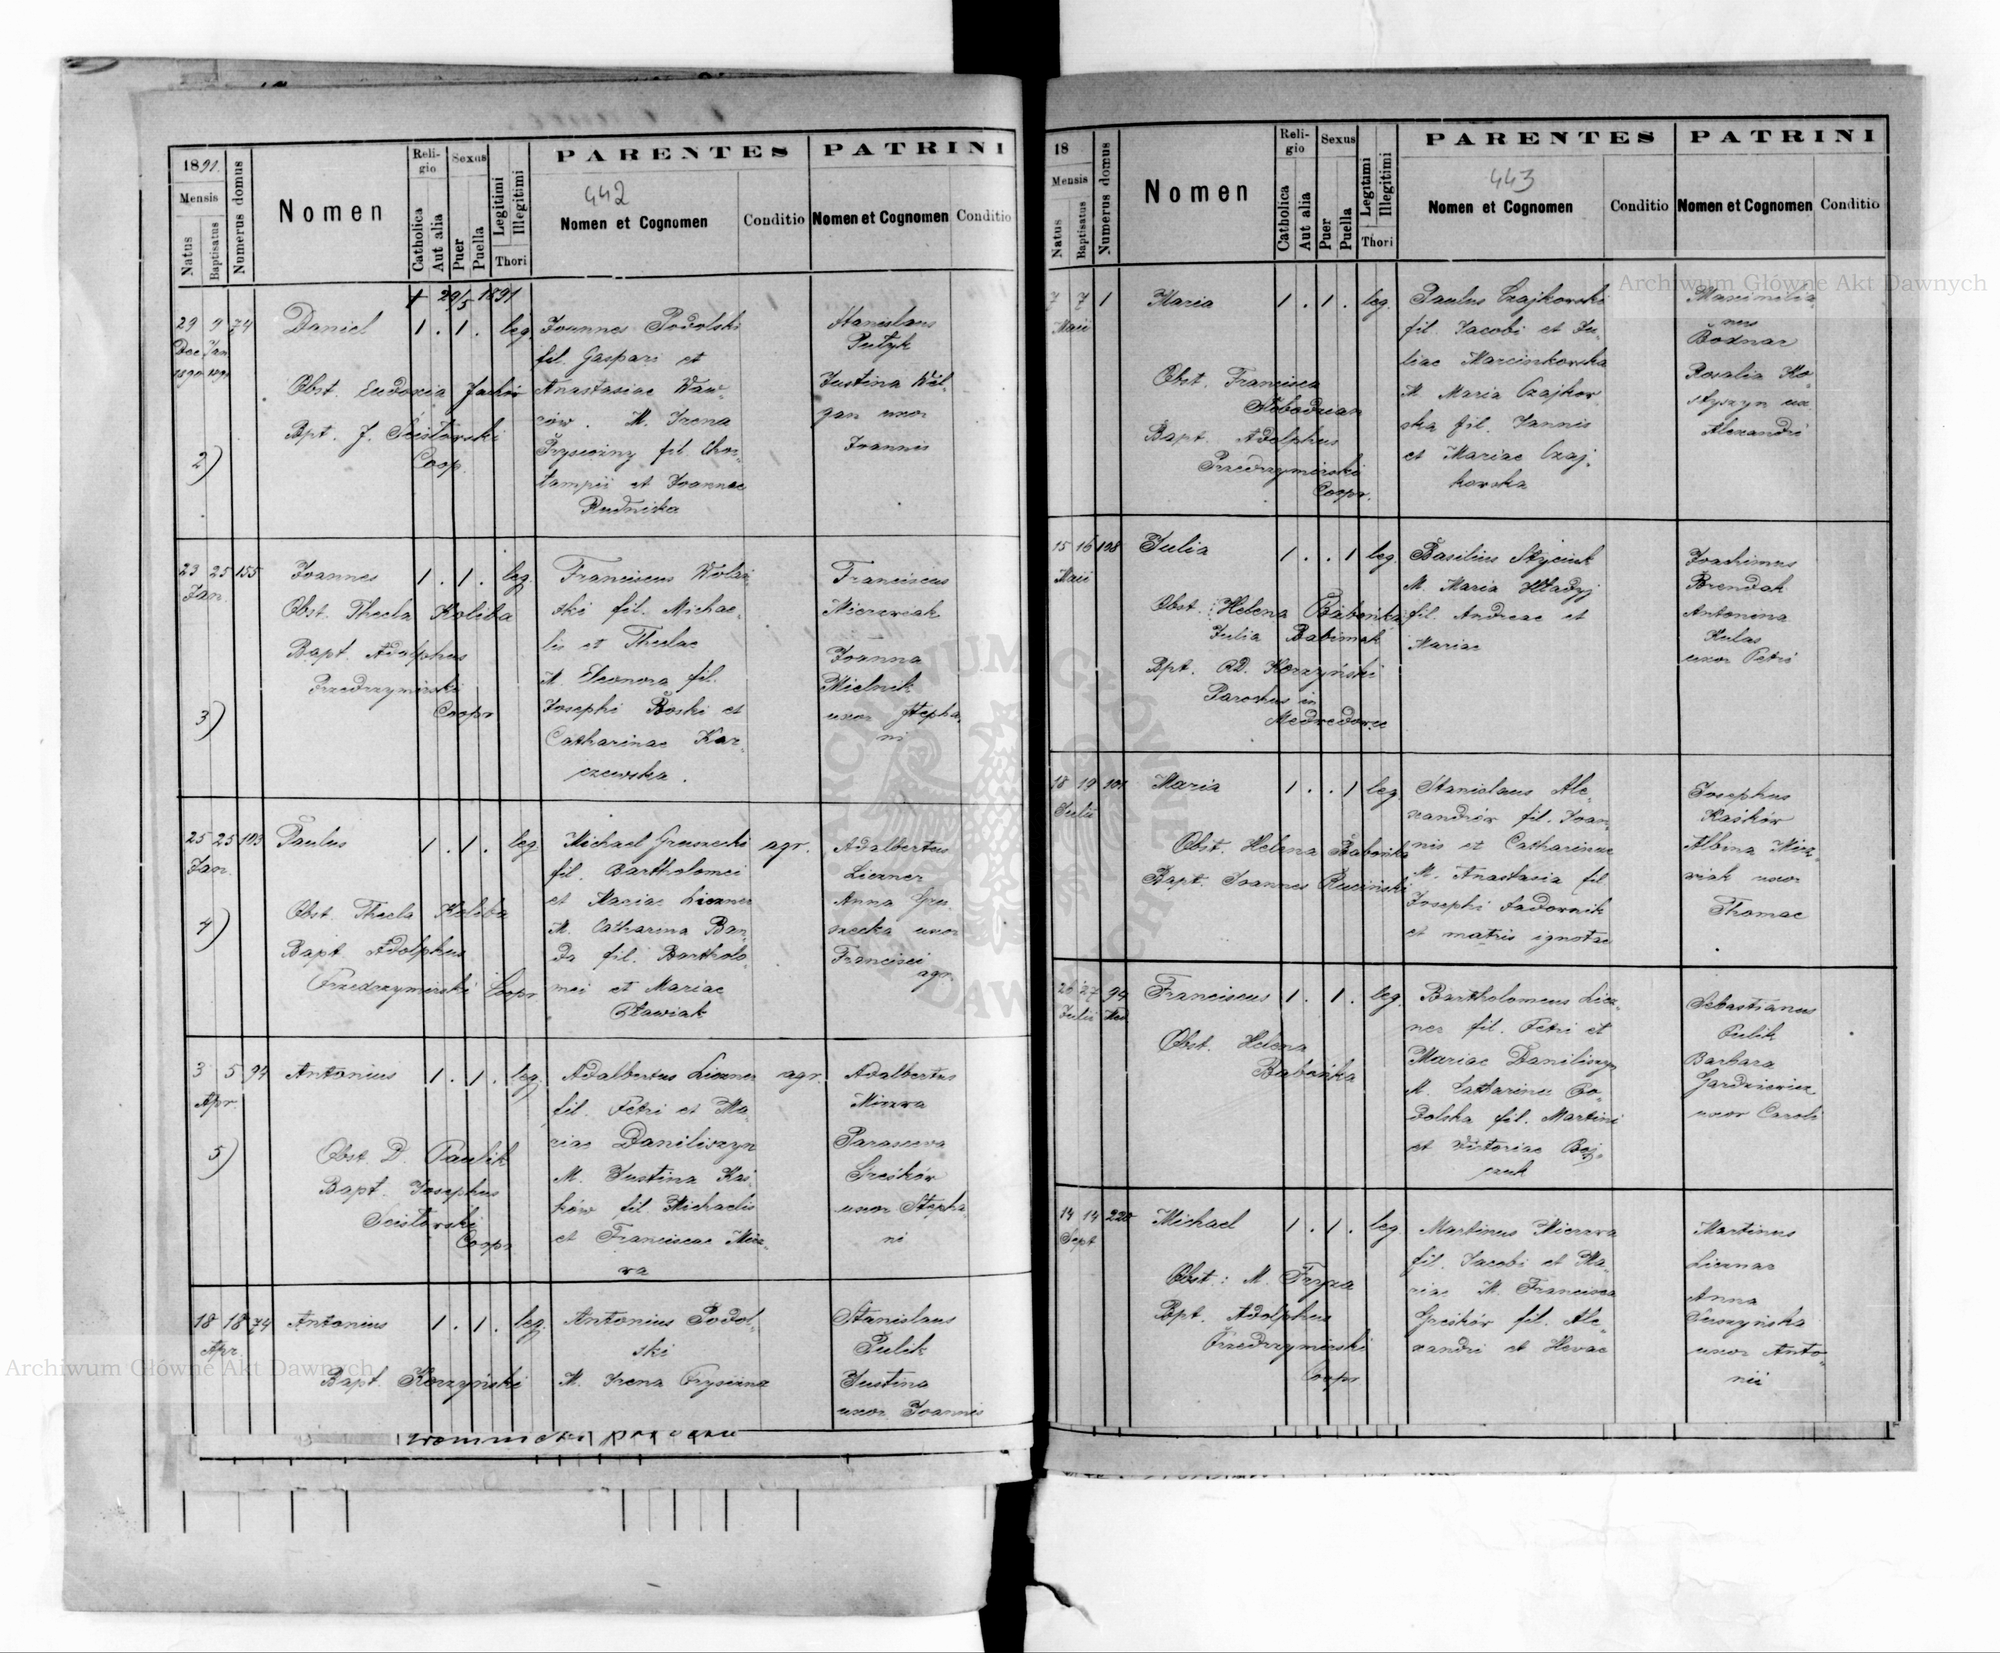 1891.
Mensis
Natus
Baptisatus
Numerus domus
Nomen
Religio
Catholica
Aut alia
Sexus
Puer
Puella
Legitimi
Illegitimi
Thori
PARENTES
442
Nomen et Cognomen
Conditio
PATRINI
Nomen et Cognomen
Conditio
† 29/3 1891
29 9 74 Daniel 1 . 1 . leg.
Dec. Jan.
1890 1891
Obst. Eudoxia
Bpt. J.
Coop.
2)
Joannes Podolski
fil. Gaspari et
Anastasiae Waw-
rów. M. Irena
fil. Char-
lampii et Joannae
Rudnicka
Stanislaus
Justina Wil-
gan uxor
Joannis
23 25 155 Joannes 1 . 1 . leg.
Jan.
Obst. Thecla Kaliba
Bapt. Adolphus
Przedrzymirski
Coopr
3)
Franciscus Wolań-
ski fil. Michae-
lis et Theclae
M. Eleonora fil.
Josephi Boski et
Catharinae Kar-
czewska.
Franciscus
Mierzwiak
Joanna
Mielnik
uxor Stepha-
ni
25 25 103 Paulus 1 . 1 . leg.
Jan.
Obst. Thecla Kaliba
Bapt. Adolphus
Przedrzymirski Coopr
4)
Michael Gruszecki agr.
fil. Bartholomei
et Mariae Liczner
M. Catharina Ban-
da fil. Bartholo-
mei et Mariae
Adalbertus
Liczner
Anna Gru-
szecka uxor
Francisci
agr.
3 5 94 Antonius 1 . 1 . leg.
Apr.
Obst. D. Pawlik
Bapt. Josephus
Coopr
5)
Adalbertus Liczner agr.
fil. Petri et Ma-
riae Daniliszyn
M. Justina Kaś-
ków fil. Michaelis
et Franciscae Mierz-
wa
Adalbertus
Mierzwa
Parasceva
Greśków
uxor Stepha-
ni
18 18 74 Antonius 1 . 1 . leg.
Apr.
Bapt. Korzyński
Antonius Podol-
ski
M. Irena
Stanislaus
Pulik
Justina
uxor Joannis
18
Mensis
Natus
Baptisatus
Numerus domus
Nomen
Religio
Catholica
Aut alia
Sexus
Puer
Puella
Legitimi
Illegitimi
Thori
PARENTES
443
Nomen et Cognomen
Conditio
PATRINI
Nomen et Cognomen
Conditio
7 7 1 Maria 1 . 1 . leg.
Maii
Obst. Francisca
Słobodzian
Bapt. Adolphus
Przedrzymirski
Coopr.
Paulus Czajkowski
fil. Jacobi et Ju-
liae Marcinkowska
M. Maria Czajkow-
ska fil. Joannis
et Mariae Czaj-
kowska
Maximilia-
nus
Bodnar
Rosalia Ko-
styszyn ux.
Alexandri
15 16 108 Julia 1 . . 1 leg.
Maii
Obst. Helena Babońka
Julia
Bpt. RD. Korzyński
Parochus in
Medwedowce
Basilius Styciuk
M. Maria Hładyj
fil. Andreae et
Mariae
Joachimus
Brendak
Antonina
Kulas
uxor Petri
18 19 101 Maria 1 . . 1 leg.
Julii
Obst. Helena Babońka
Bapt. Joannes Ruciński
Stanislaus Ale-
xandrów fil. Joan-
nis et Catharinae
M. Anastasia fil
Josephi Zadornik
et matris ignotae
Josephus
Kaśków
Albina Mierz-
wiak uxor
Thomae
26 27 94 Franciscus 1 . 1 . leg.
Julii
Obst. Helena
Babońka
Bartholomeus Licz-
ner fil. Petri et
Mariae Daniliszyn
M. Catharina Po-
dolska fil. Martini
et Victoriae Boj-
czuk
Sebastianus
Pulik
Barbara
Gardziewicz
uxor Caroli
14 14 220 Michael 1 . 1 . leg.
Sept
Obst.: M. Fryza
Bpt. Adolphus
Przedrzymirski
Coopr
Martinus Mierzwa
fil. Jacobi et Ma-
riae M. Francisca
Greśków fil. Ale-
xandri et Hevae
Martinus
Licznar
Anna
Tuszyńska
uxor Anto-
nii
Archiwum Główne Akt Dawnych
Archiwum Główne Akt Dawnych
ARCHIWUM GŁÓWNE AKT DAWNYCH